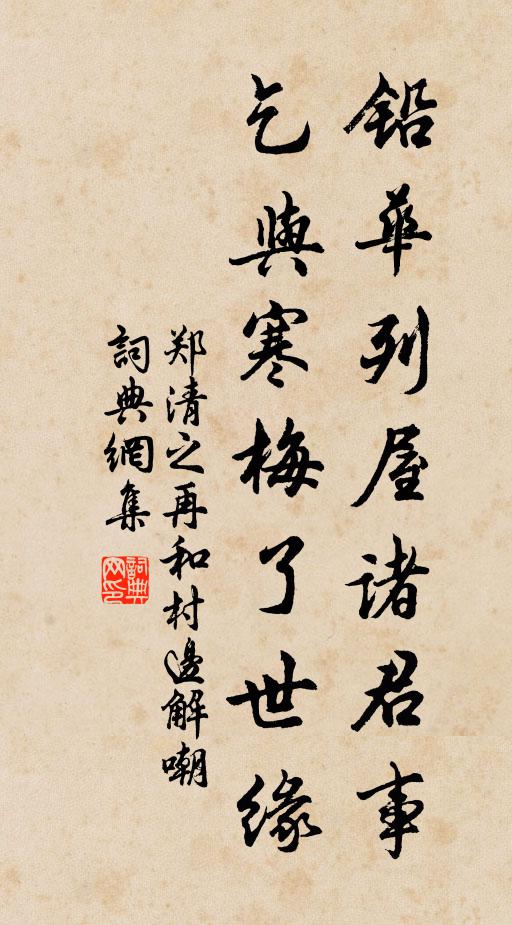 铅华列屋诸君事
乞與寒梅了世缘
郑清之再和村邊解嘲
詞典網集
詞典网印